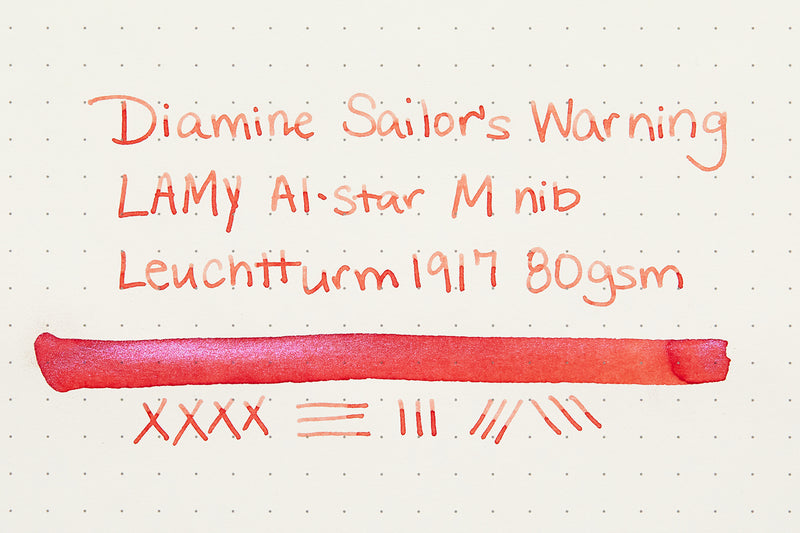 Diamine Sailor's Warning
LAMY Al-star M nib
Leuchtturm1917 80gsm
XXXX